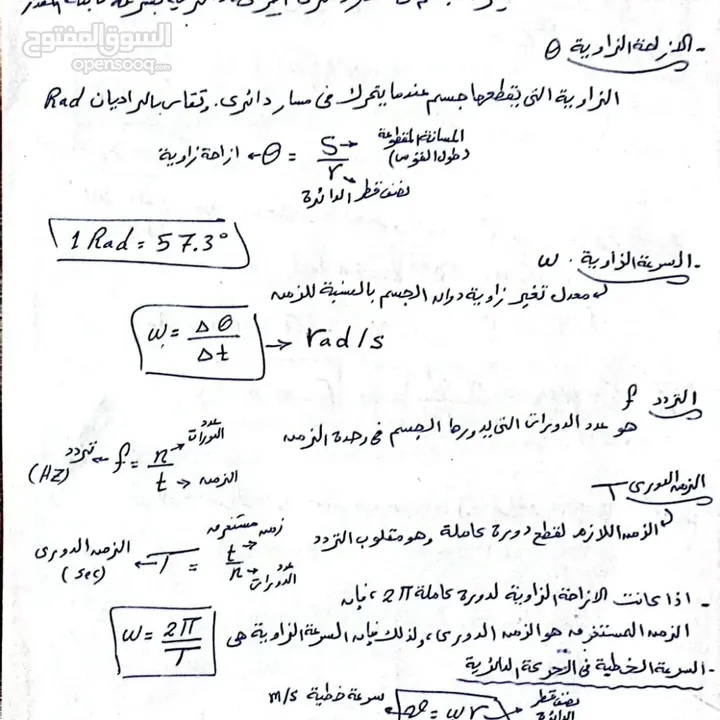 السوق المفتوح
opensooq.com
- الازاحة الزاوية θ
الزاوية التي يقطعها جسم عندما يتحرك فى مسار دائرى. وتقاس بالراديان Rad
ازاحة زاوية ← θ = S/r → المسافة المقطوعة (طول القوس)
نصف قطر الدائرة
1 Rad = 57.3°
- السرعة الزاوية . ω
معدل تغير زاوية دوران الجسم بالنسبة للزمن
ω = Δθ/Δt → rad/s
التردد f
هو عدد الدورات التى يدورها الجسم فى وحدة الزمن
تردد (HZ) ← f = n/t → عدد الدورات
الزمن
الزمن الدورى T
الزمن اللازم لقطع دورة كاملة وهو مقلوب التردد
الزمن الدورى (sec) ← T = t/n → زمن مستغرق
عدد الدورات
- اذا كانت الازاحة الزاوية لدورة كاملة 2π فإن
الزمن المستغرق هو الزمن الدورى، ولذلك فإن السرعة الزاوية هى
ω = 2π/T
- السرعة الخطية فى الحركة الدائرية
سرعة خطية m/s ← v = ωr → نصف قطر الدائرة